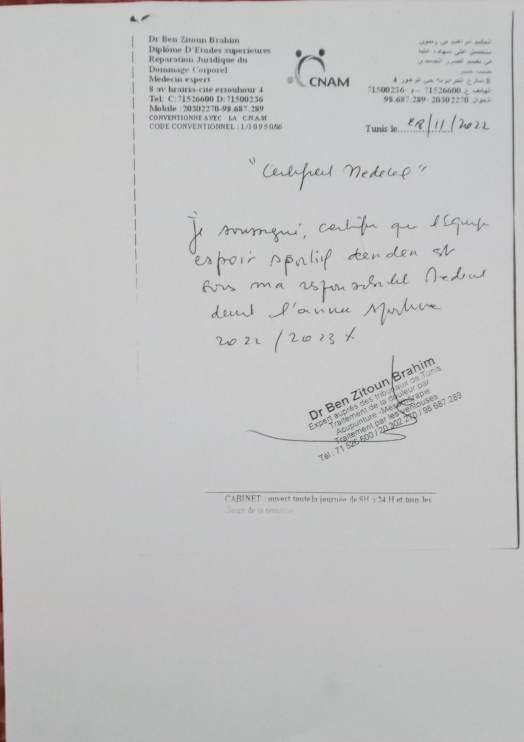 Dr Ben Zitoun Brahim
Diplôme D'Etudes superieures
Reparation Juridique du
Dommage Corporel
Medecin expert
8 av brairia-cité ezzouhour 4
Tel: C:71526600 D:71500236
Mobile :20302270-98.687.289
CONVENTIONNE AVEC LA C.N.A.M
CODE CONVENTIONNEL : 1/10950/86
CNAM
71500236
71526600
98.687.289- 20302270
Tunis le 28/11/2022
"Certificat Medecal"
je soussigné, certifie que l'équipe
espoir sportif denden est
sous ma responsabilité Medecal
dent l'année sportive
2022 / 2023 ٪
Dr Ben Zitoun Brahim
Expert auprès des tribunaux de Tunis
Traitement de la douleur par
Acupunture -Mésothérapie
Traitement par les ventouses
Tél : 71 526 600 / 20 302 270 / 98 687 289
CABINET : ouvert toute la journée de 8H à 24 H et tous les
Jours de la semaine